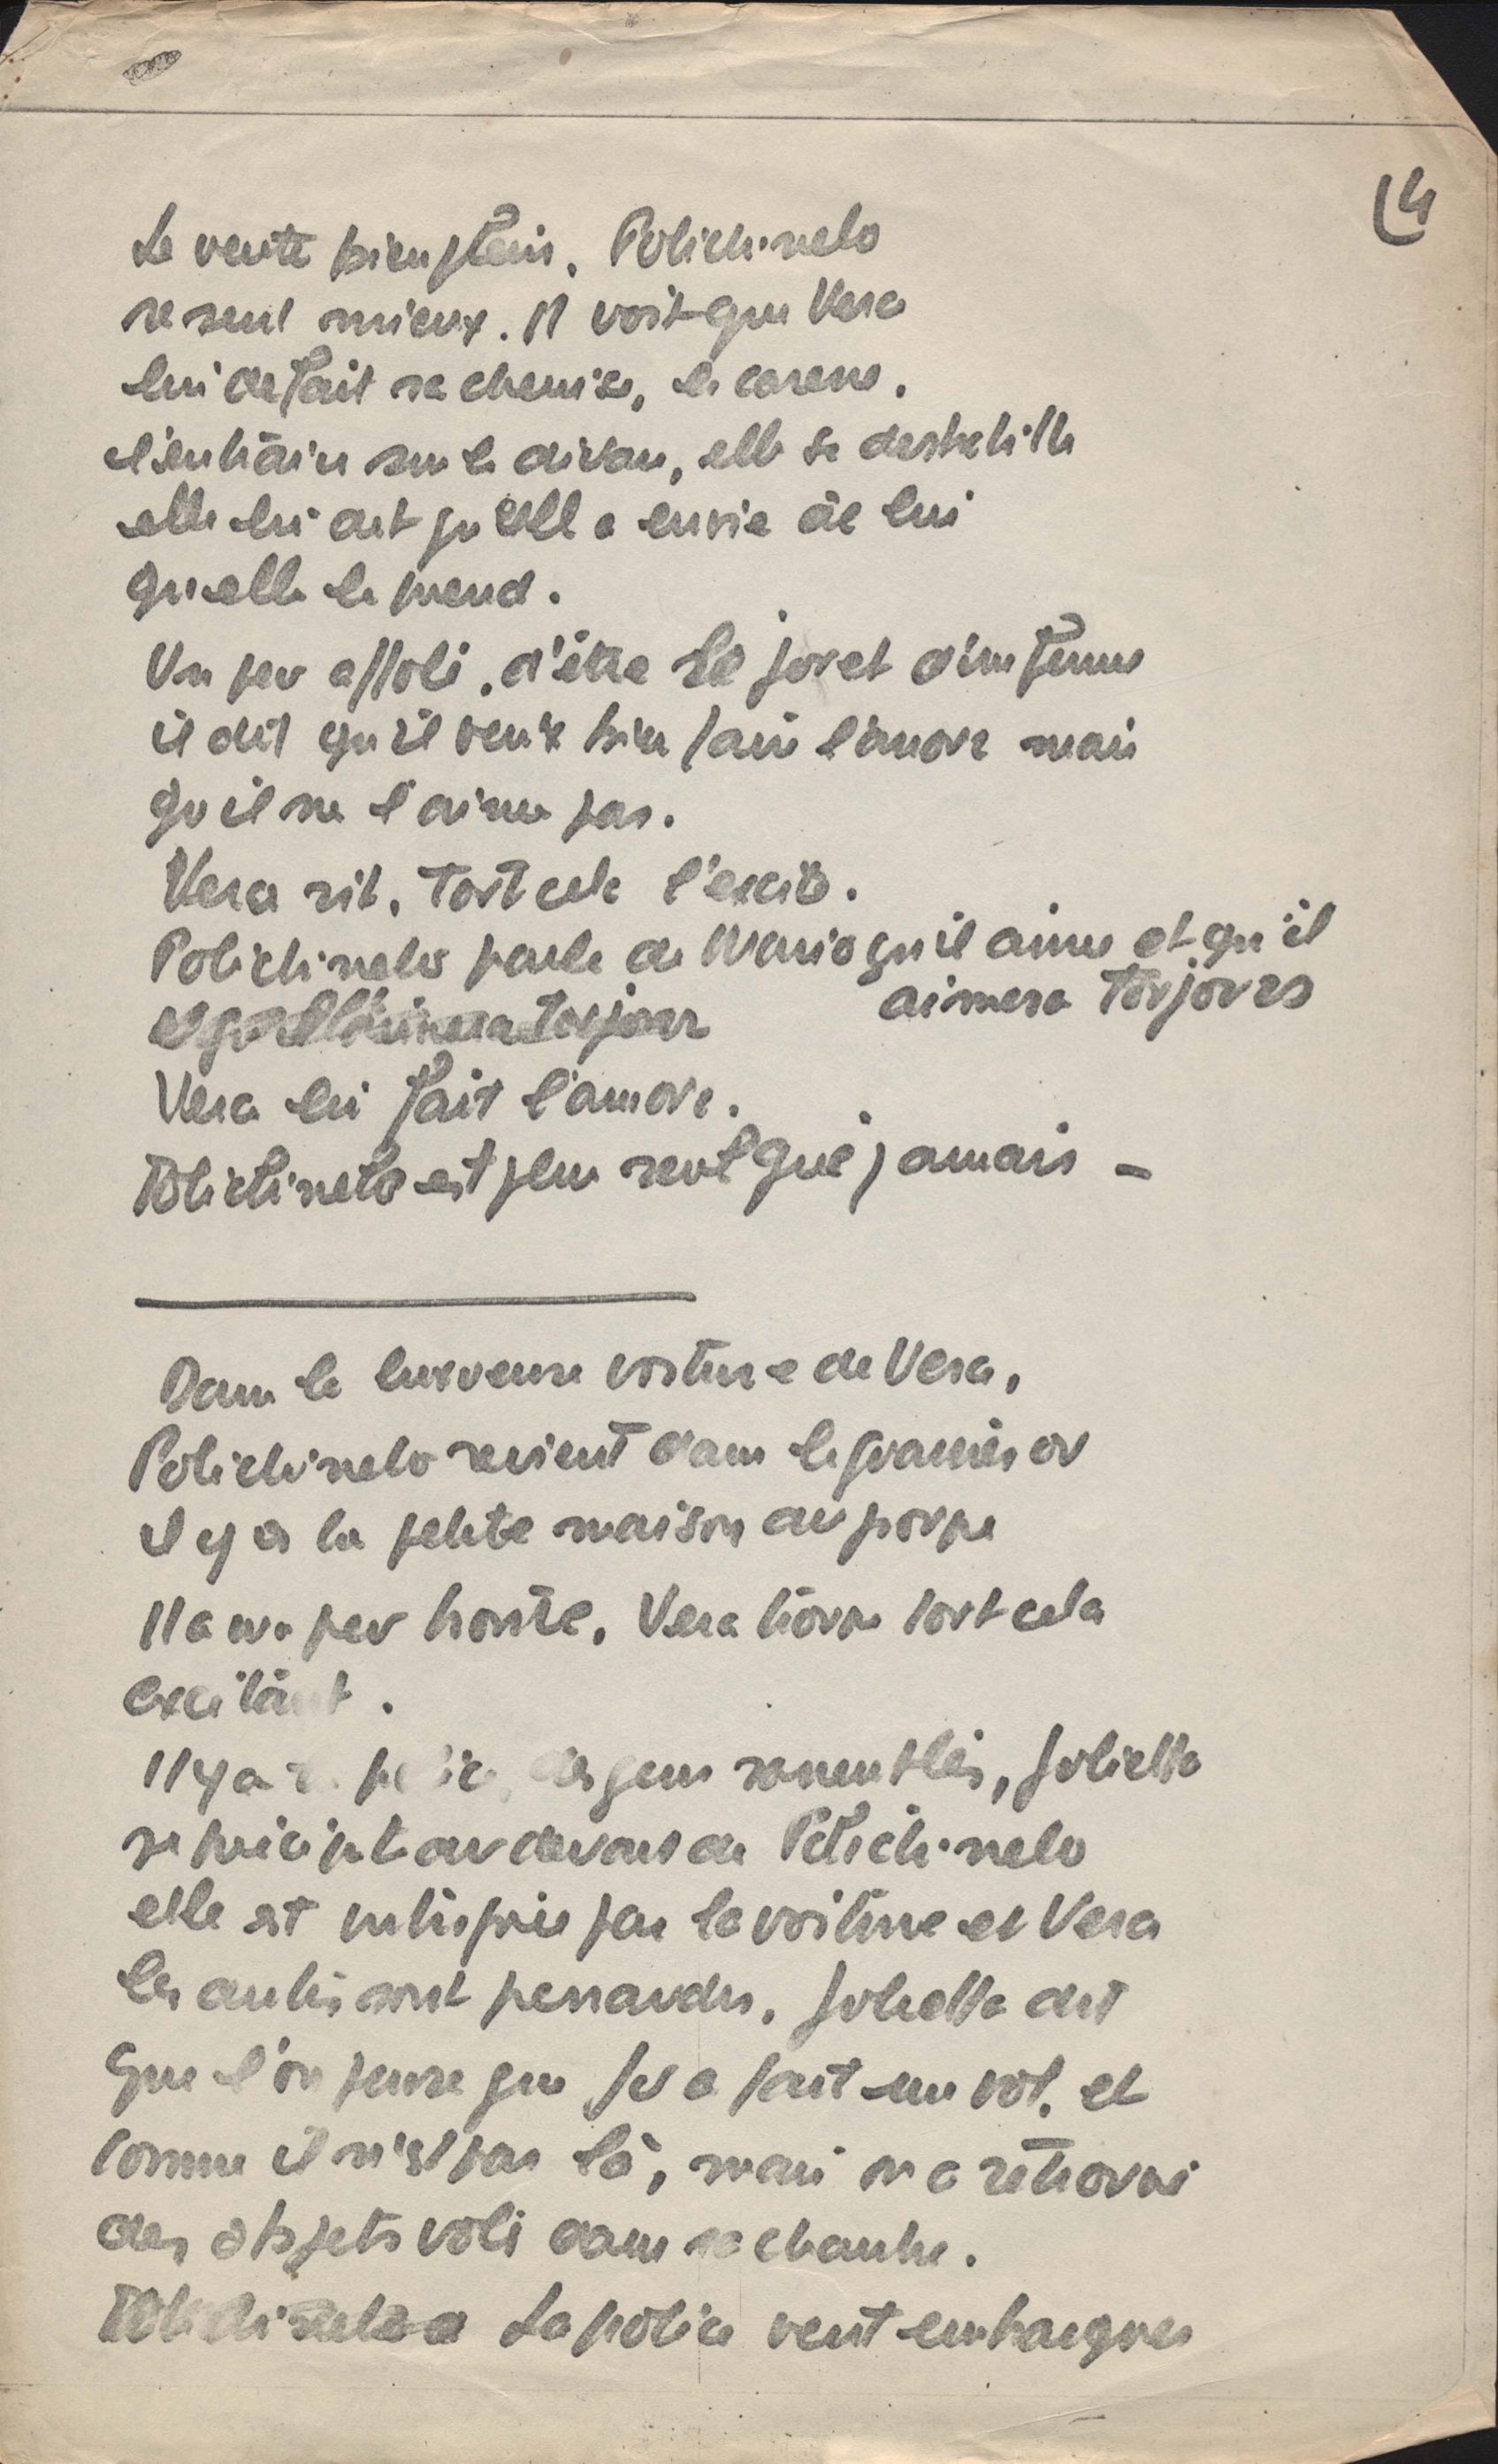 14
Le ventre bien plein, Polichinelo
se sent mieux. Il voit que Vera
lui défait sa chemise, le caresse,
l'entraine sur le divan, elle se deshabille
elle lui dit qu'elle a envie de lui
qu'elle le prend.
Un peu affolé, d'être le jouet d'une femme
il dit qu'il veux bien faire l'amour mais
qu'il ne l'aime pas.
Vera rit. Tout cela l'excite.
Polichinelo parle de Mario qu'il aime et qu'il
aimera toujours
et qu'il l'aimera toujours
Vera lui fait l'amour.
Polichinelo est plus seul que jamais –
Dans la luxueuse voiture de Vera,
Polichinelo revient dans le quartier ou
il y a la petite maison du
Il a un peu honte. Vera trouve tout cela
excitant.
Il y a la police, des gens rassemblés, Julietta
se précipite au devant de Polichinelo
elle est intriguée par la voiture et Vera
les autres sont penaudes. Julietta dit
que l'on pense que a fait un vol. et
comme il n'est pas là, mais on a retrouvé
des objets volé dans sa chambre.
La police veut embarquer